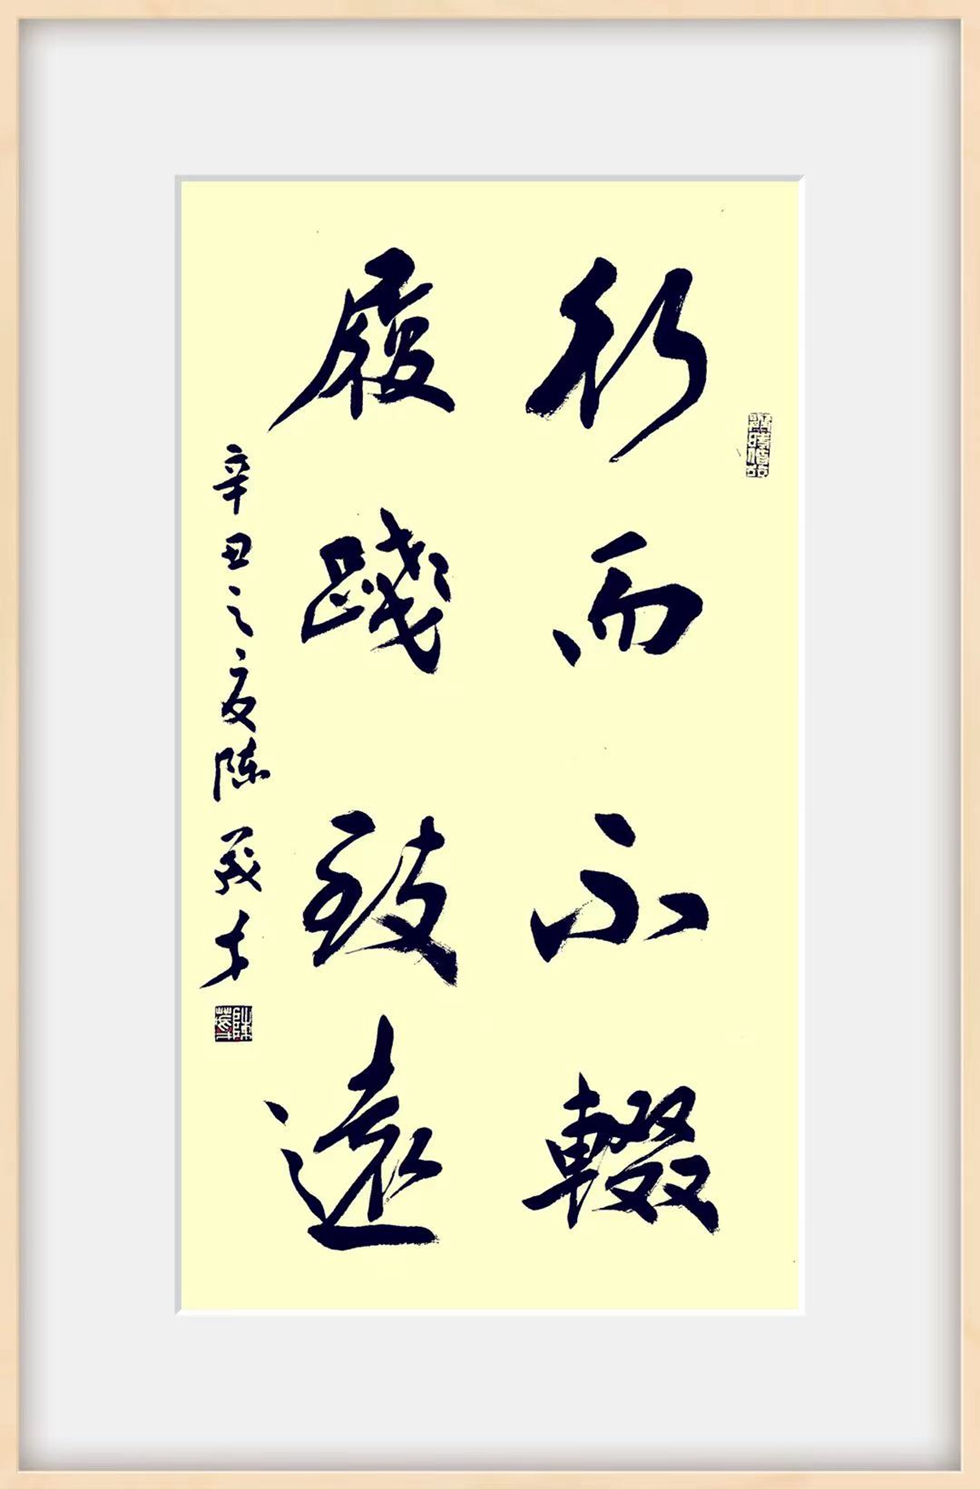 行而不輟
履踐致遠
辛丑之夏陈義才